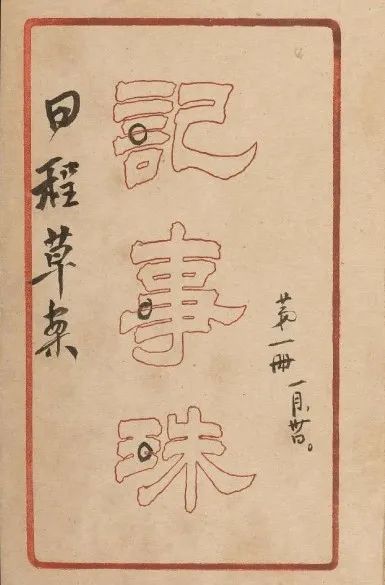 第一冊 一月
記事珠
日程草案